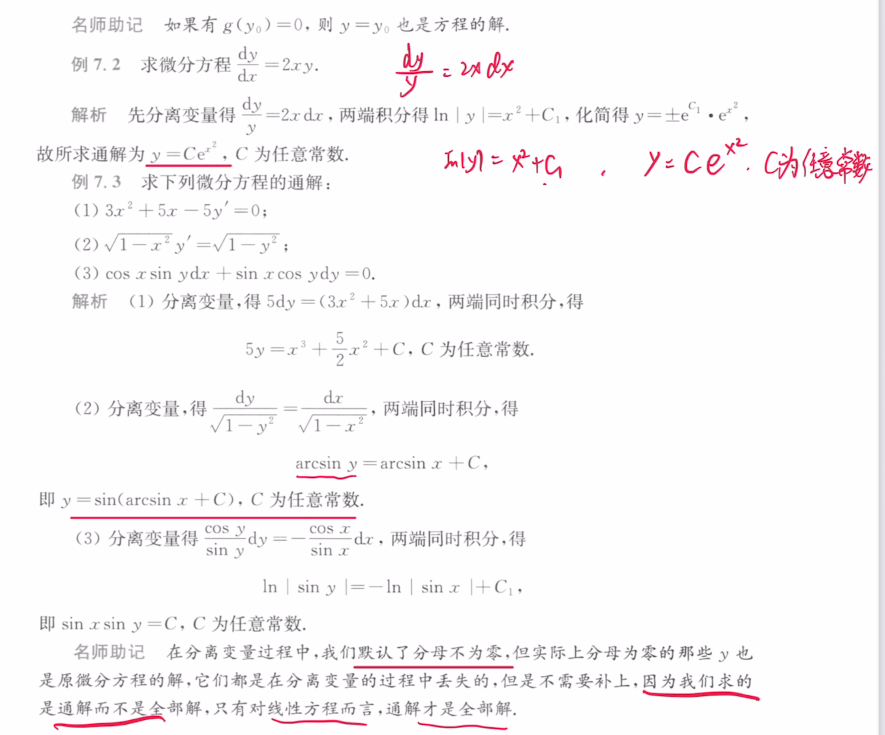 名师助记 如果有 g(y₀)=0, 则 y=y₀ 也是方程的解.
例 7.2 求微分方程 dy/dx =2xy.
dy/y = 2x dx
解析 先分离变量得 dy/y =2x dx, 两端积分得 ln|y|=x²+C₁, 化简得 y=±e^{C₁}·e^{x²},
故所求通解为 y=Ce^{x²}, C 为任意常数.
ln|y| = x²+C₁ , y=Ce^{x²}. C为任意常数
例 7.3 求下列微分方程的通解:
(1) 3x²+5x-5y′=0;
(2) √(1-x²) y′=√(1-y²);
(3) cos x sin ydx+sin x cos ydy=0.
解析 (1) 分离变量,得 5dy=(3x²+5x)dx, 两端同时积分,得
5y=x³+5/2 x²+C, C 为任意常数.
(2) 分离变量,得 dy/√(1-y²) = dx/√(1-x²), 两端同时积分,得
arcsin y=arcsin x+C,
即 y=sin(arcsin x+C), C 为任意常数.
(3) 分离变量得 cos y/sin y dy=-cos x/sin x dx, 两端同时积分,得
ln|sin y|=-ln|sin x|+C₁,
即 sin x sin y=C, C 为任意常数.
名师助记 在分离变量过程中,我们默认了分母不为零,但实际上分母为零的那些 y 也
是原微分方程的解,它们都是在分离变量的过程中丢失的,但是不需要补上,因为我们求的
是通解而不是全部解,只有对线性方程而言,通解才是全部解.